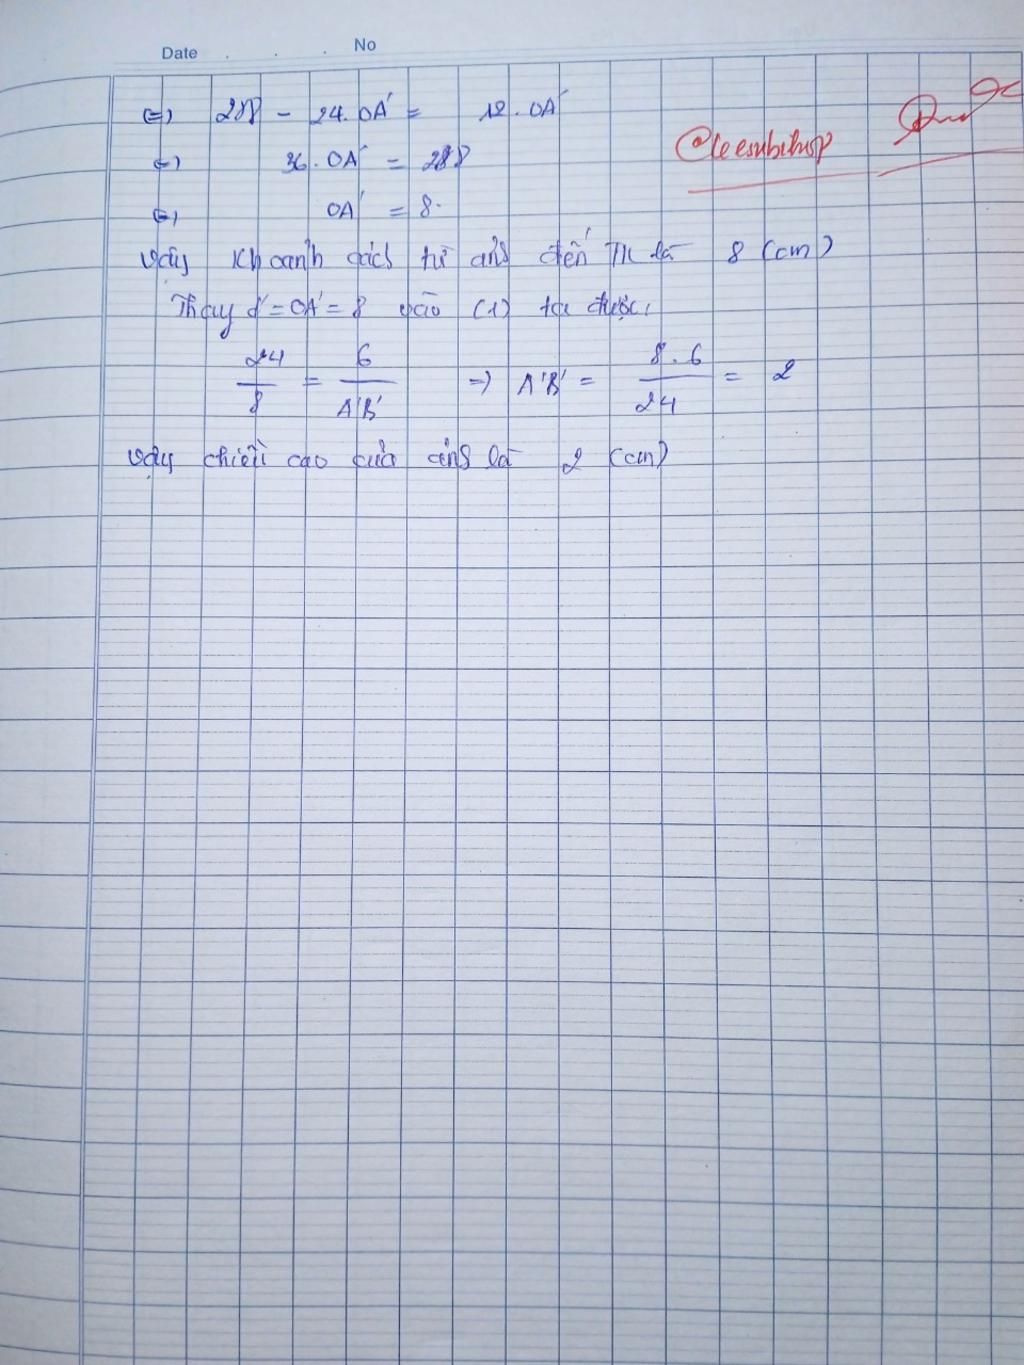 Date . . . No
(=) 288 - 24.OA' = 12.OA'
(=) 36.OA' = 288
(=) OA' = 8.
Vậy khoảnh cách từ ảnh đến TK là 8 (cm)
Thay d' = OA' = 8 vào (1) ta được:
24/8 = 6/A'B' => A'B' = 8.6/24 = 2
Vậy chiều cao của ảnh là 2 (cm)